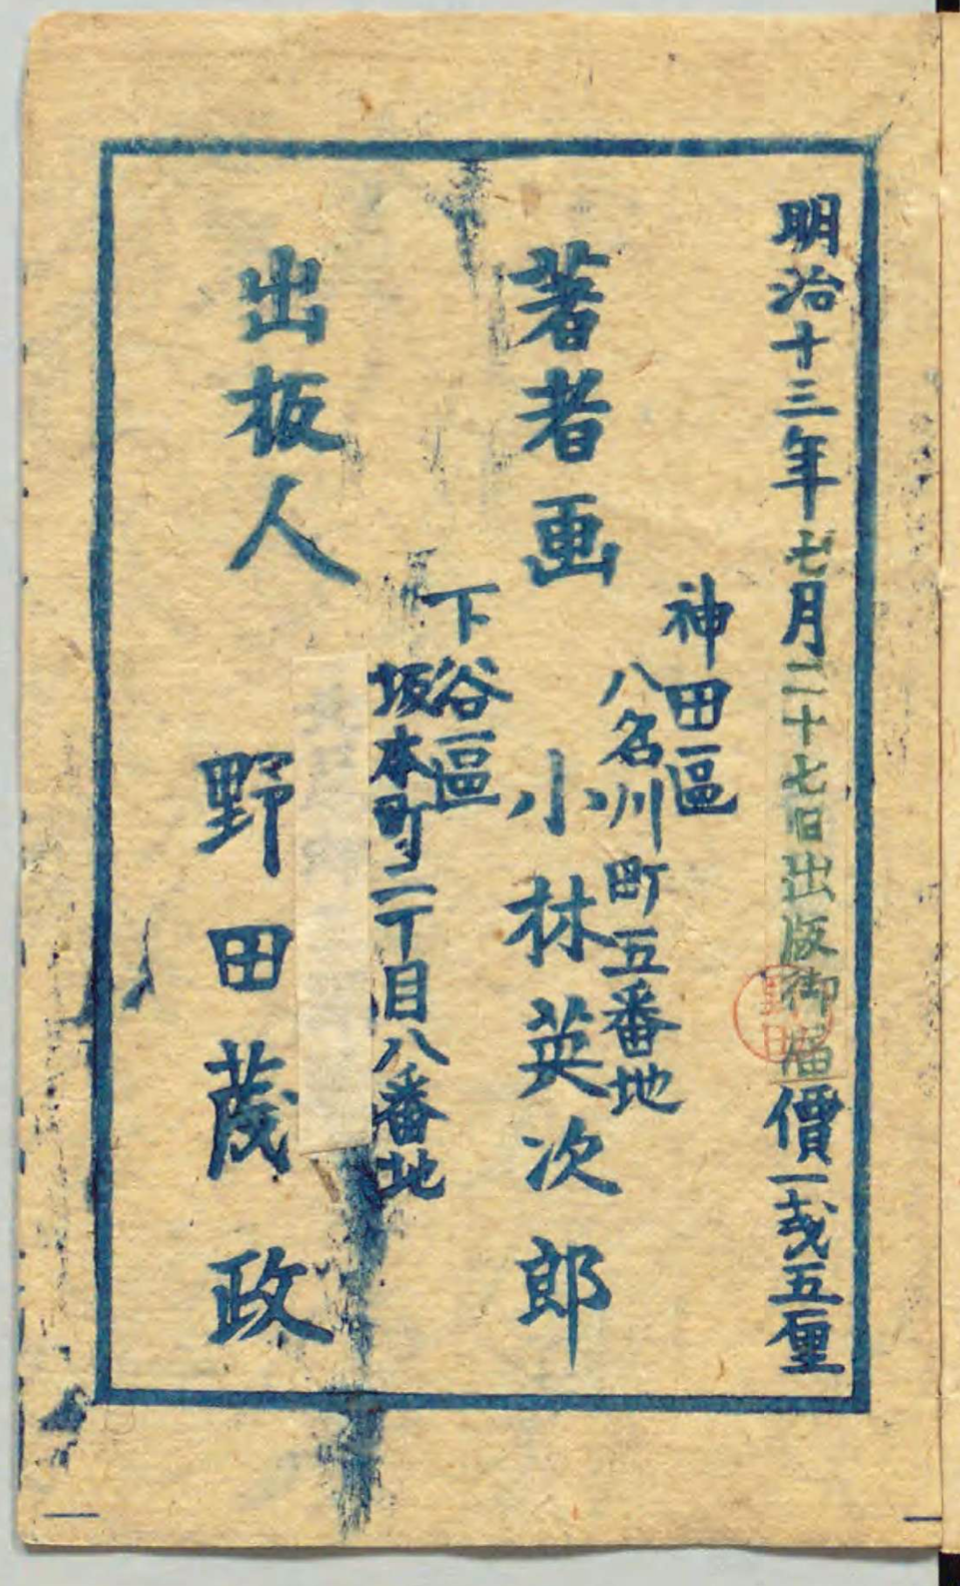 明治十三年七月二十七日出版御届價一戋五厘
神田區
八名川町五番地
著者画 小林英次郎
下谷區
坂本町二丁目八番地
出板人 野田茂政
野田